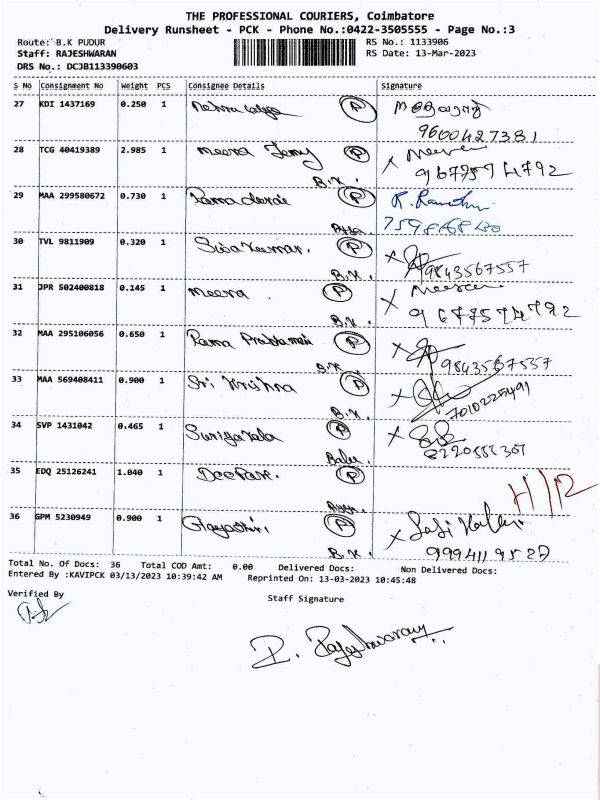 THE PROFESSIONAL COURIERS, Coimbatore
Delivery Runsheet - PCK - Phone No.:0422-3505555 - Page No.:3
Route: B.K PUDUR
RS No.: 1133906
Staff: RAJESHWARAN
RS Date: 13-Mar-2023
DRS No.: DCJB113390603
S No Consignment No Weight PCS Consignee Details Signature
27 KDI 1437169 0.250 1 P
9600427381
28 TCG 40419389 2.985 1 Meera P Meera
B.K.
29 MAA 299580672 0.730 1 Rama P
30 TVL 9811909 0.320 1 Sivakumar. P
B.K. 9843567557
31 JPR 502400818 0.145 1 Meera P Meera
B.K.
32 MAA 295106056 0.650 1 Rama P
B.K. 9843567557
33 MAA 569408411 0.900 1 Sri Krishna P
B.K. 7010225491
34 SVP 1431042 0.465 1 Suriyakala P
35 EDQ 25126241 1.040 1 P
36 GPM 5230949 0.900 1 Gayathri. P Sasi Kala
B.K. 9994119527
Total No. Of Docs: 36 Total COD Amt: 0.00 Delivered Docs: Non Delivered Docs:
Entered By :KAVIPCK 03/13/2023 10:39:42 AM Reprinted On: 13-03-2023 10:45:48
Verified By
Staff Signature
R. Rajeshwaran